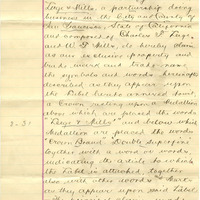 Taige & Mills, a partnership doing
business in the City and County of
San Francisco, State of California
and composed of Charles F.
and W. F. Mills, do hereby claim
as our exclusive property and
trade mark and trade name
the symbols and words herein
described as they appear upon
the label hereto annexed
a Crown resting upon a Medallion
above which are placed the words
& Mills" and below which
3.31. Medallion are placed the words
"Crown Brand" Double Superfine
together with a word or words
indicating the article to which
the label is attached, together
with other words & Marks
as they appear upon said Label.